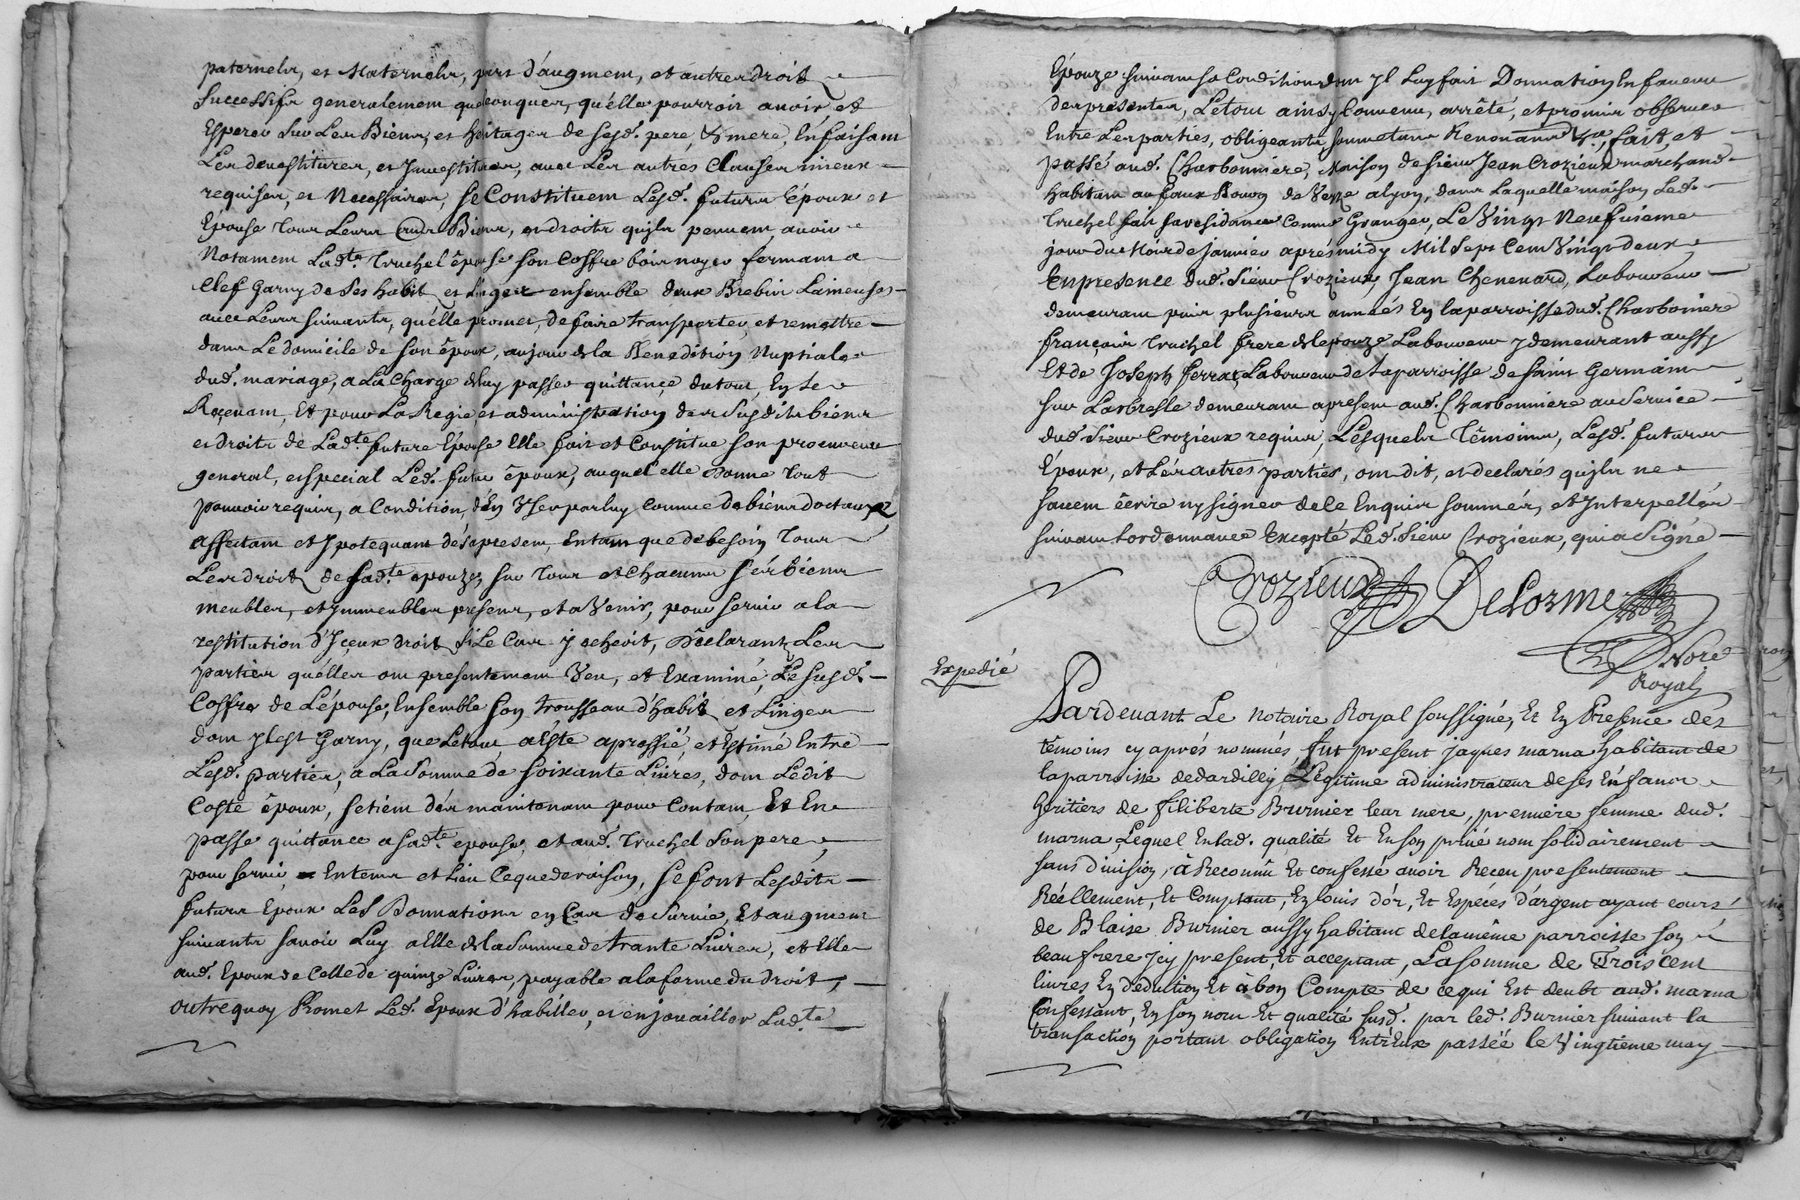 paternels, et Maternels, pars d'augment, et autres droits
Successifs generalement quelconques, qu'elle pourroit avoir et
Esperer sur Les Biens, et heitages de sesd. pere, & mere, En faisant
Les devestitures, et Investitures, avec Les autres Clauses mieux
requises, et Necessaires, se Constituent Lesd. futurs époux et
Epouse Tous Leurs Biens, et droits qu'ils peuvent avoir
Notament Lad.te Truchel épouse son Coffre bois noyer fermant a
Clef Garny de Ses habits et Linges ensemble deux Brebis Laineuses
avec Leurs suivants, qu'elle promet, de faire transporter, et remettre
dans Le domicile de son époux, au jour de la Benedition Nuptiale
dud. mariage, a La Charge de luy passer quittance du tout, En Le
Recevant, Et pour La Regie et administration des Susdits biens
et droits de Lad.te future Epouse Elle fait et Constitue son procureur
general, et special Led. futur époux, auquel elle donne Tout
pouvoir requis, a Condition, d'En User par luy Comme de biens dotaux
affectant et Ipotequant dés apresent, Entant que de besoin Tous
Les droits de sad.te epouze, sur Tous et Chacuns ses biens
meubles, et Immeubles presens, et a Venir, pour servir a la
restitution d'Iceux droits si Le Cas y echeoit, Déclarants Les
parties qu'elles ont presentement Veu, et Examiné, Le susd.
Coffre de L'épouse, Ensemble son trousseau d'habits et Linges
dont Il est Garny, que Le tout a esté apressié, et Estimé Entre
Lesd. parties, a La Somme de soixante Livres, dont Ledit
Coste époux, se tient dés maintenant pour Contant, Et En
passe quittance a Sad.te epouse, et aud. Truchel Son pere,
pour servir, En tems et Lieu Ce que de raison, se font Lesdits
futurs Epoux Les Donnations en Cas de Survie, Et augment
suivants savoir Luy a Elle de la Somme de trante Livres, et Elle
aud. Epoux de Celle de quinze Livres, payable a la forme du droit,
outre quoy Promet Led. Epoux d'habiller, et enjouailler Lad.te
Épouze suivant sa Condition dont Il Luy fait Donnation En faveur
des presentes, Le tout ainsy Convenu, arrêté, et promis observer
Entre Les parties, obligeants, soumetants Renonants &a, fait, et
passé aud. Charbonniere, Maison de sieur Jean Crozieux marchand
habitant au faux Bourg de Veyze a Lyon, dans Laquelle maison Led.
Truchel fait sa residance Comme Granger, Le Vingt Neufvieme
jour du Mois de janvier aprés midy Mil Sept Cent Vingt deux
En presence dud. Sieur Crozieux, Jean Chenenard, Laboureur
demeurant puis plusieurs années En la parroisse dud. Charbonniere
françois Truchel frere de lepouze Laboureur y demeurant aussy
Et de Joseph ferrat Laboureur de La parroisse de saint Germain
sur Larbresle demeurant apresent aud. Charbonniere au Service
dud. Sieur Crozieux requis, Lesquels Témoins, Lesd. futurs
Époux, et Les autres parties, ont dit, et declarés qu'ils ne
savent écrire ny signer de le Enquis sommés, et Interpellés
suivant Lordonnance Excepté Led. Sieur Crozieux, qui a Signé
Crozieux Delorme
Nore
Royal
Expedié
Pardevant Le notaire Royal soussigné, Et En Presence des
témoins cy aprés nommés, fut present jaques marna habitant de
la parroisse de dardilly, Legitime administrateur de ses Enfans
heritiers de filiberte Burnier leur mere, premiere femme dud.
marna, Lequel En lad. qualité Et En son privé nom solidairement
sans division, à Reconnû Et confessé avoir Receu presentement
Réellement, Et Comptant, En louis d'ór, Et Espéces d'argent ayant cours
de Blaise Burnier aussy habitant de la même parroisse son
beau frere jcy present, Et acceptant, La somme de Trois cent
livres En déduction Et à bon Compte de ce qui Est deubt aud. marna
Confessant, En son nom Et qualité susd. par led. Burnier suivant la
transaction portant obligation Entr'eux passée le Vingtieme may